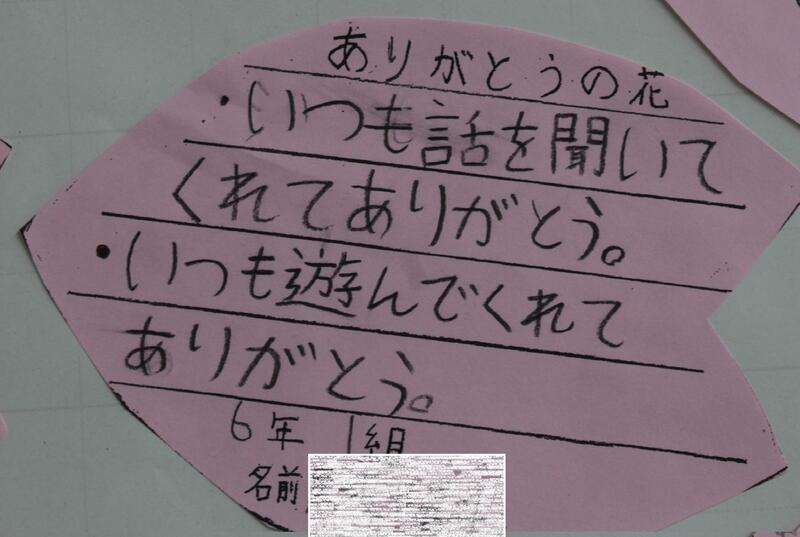 ありがとうの花
・いつも話を聞いて
くれてありがとう。
・いつも遊んでくれて
ありがとう。
6年 1組
名前